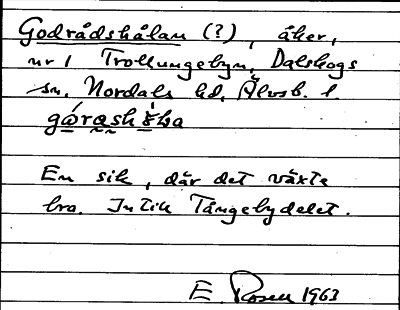 Godrådshålan (?), åker,
nr 1 Trollungebyn, Dalskogs
sn, Nordals hd, Älvsb. l.
En sik, där det växte
bra. Intill Tångebydelet.
E. Rosell 1963